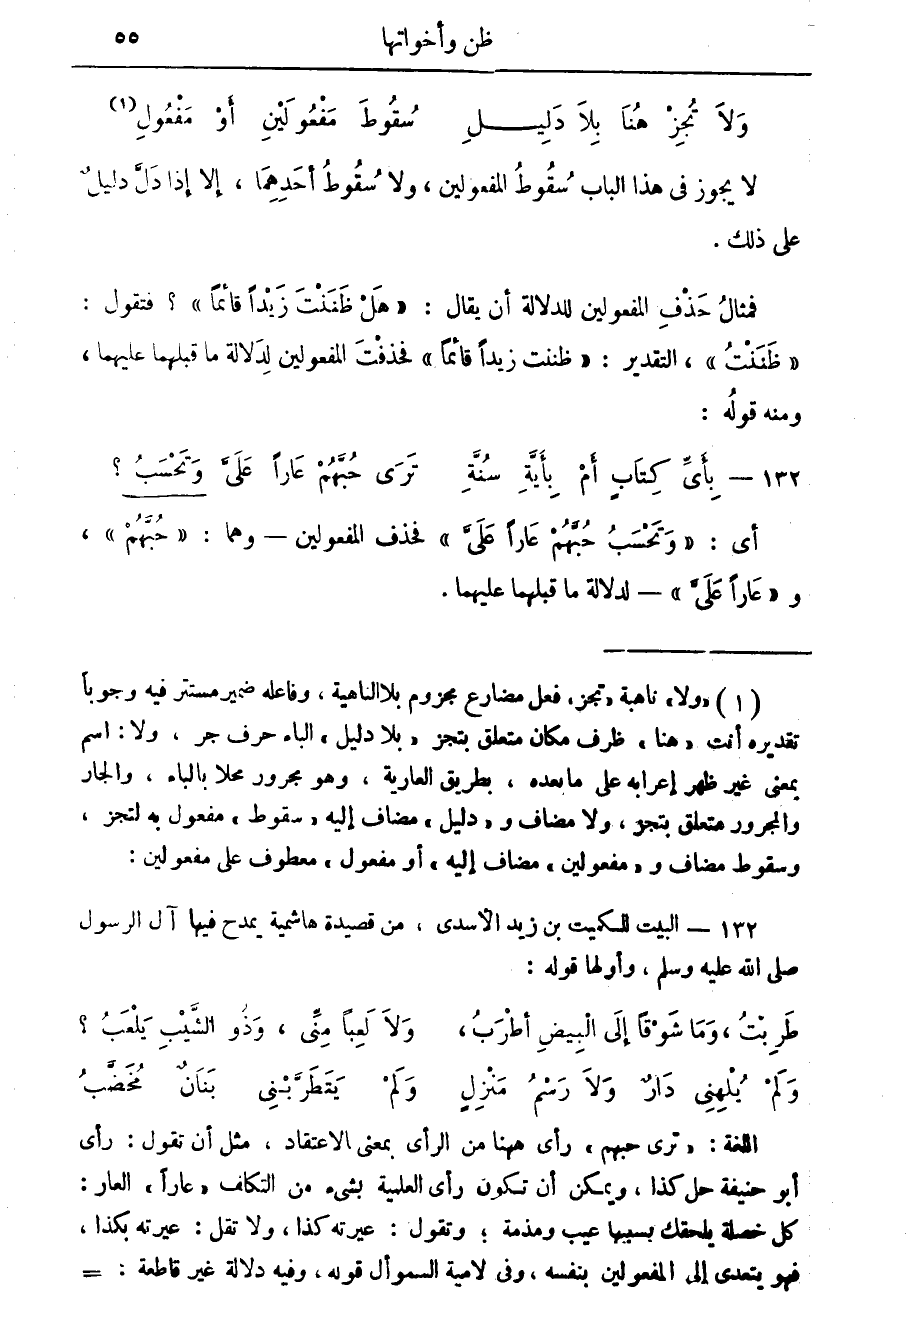 ظن وأخواتها ٥٥
وَلاَ تُجِزْ هُنَا بِلاَ دَلِيـــــلِ سُقُوطَ مَفْعُولَيْنِ أَوْ مَفْعُولِ(١)
لا يجوز فى هذا الباب سُقُوطُ المفعولين ، ولا سُقُوطُ أحَدِهِمَا ، إلا إذا دَلَّ دليلٌ
على ذلك .
فمثالُ حَذْفِ المفعولين للدلالة أن يقال : « هَلْ ظَنَنْتَ زَيْداً قَائماً » ؟ فتقول :
« ظَنَنْتُ » ، التقدير : « ظننت زيداً قائماً » فحذفْتَ المفعولين لِدَلالة ما قبلهما عليهما ،
ومنه قولُه :
١٣٢ — بِأَىِّ كِتَابٍ أَمْ بِأَيَّةِ سُنَّةٍ تَرَى حُبَّهُمْ عَاراً عَلَىَّ وَتَحْسَبُ ؟
أى : « وَتَحْسَبُ حُبَّهُمْ عَاراً عَلَىَّ » فحذف المفعولين — وهما : « حُبَّهُمْ » ،
و « عَاراً عَلَىَّ » — لدلالة ما قبلهما عليهما .
( ١ ) «ولا» ناهية «تجز» فعل مضارع مجزوم بلا الناهية ، وفاعله ضمير مستتر فيه وجوباً
تقديره أنت «هنا» ظرف مكان متعلق بتجز «بلا دليل» الباء حرف جر ، ولا : اسم
بمعنى غير ظهر إعرابه على ما بعده ، بطريق العارية ، وهو مجرور محلا بالباء ، والجار
والمجرور متعلق بتجز ، ولا مضاف و «دليل» مضاف إليه «سقوط» مفعول به لتجز ،
وسقوط مضاف و «مفعولين» مضاف إليه «أو مفعول» معطوف على مفعولين :
١٣٢ — البيت للكميت بن زيد الأسدى ، من قصيدة هاشمية يمدح فيها آل الرسول
صلى الله عليه وسلم ، وأولها قوله :
طَرِبْتُ ، وَمَا شَوْقاً إلَى الْبِيضِ أطْرَبُ ، وَلاَ لَعِباً مِنِّى ، وَذُو الشَّيْبِ يَلْعَبُ ؟
وَلَمْ يُلْهِنِى دَارٌ وَلاَ رَسْمُ مَنْزِلٍ وَلَمْ يَتَطَرَّبْنِى بَنَانٌ مُخَضَّبُ
اللغة : «ترى حبهم» رأى ههنا من الرأى بمعنى الاعتقاد ، مثل أن تقول : رأى
أبو حنيفة حل كذا ، ويمكن أن تكون رأى العلمية بشىء من التكلف «عاراً» العار :
كل خصلة يلحقك بسببها عيب ومذمة ؛ وتقول : عيرته كذا ، ولا تقل : عيرته بكذا ،
فهو يتعدى إلى المفعولين بنفسه ، وفى لامية السموأل قوله ، وفيه دلالة غير قاطعة : =